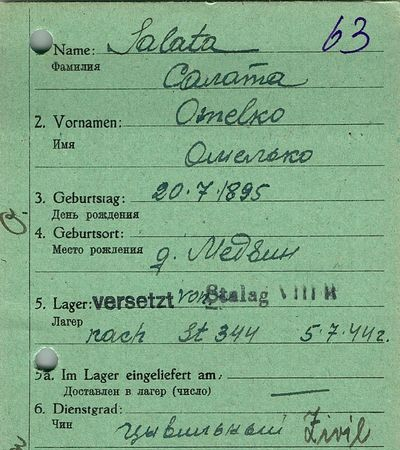 Name: Salata 63
Фамилия Салата
2. Vornamen: Omelko
Имя Омелько
3. Geburtstag: 20.7.1895
День рождения
4. Geburtsort:
Место рождения д. Медвин
5. Lager: versetzt von Stalag VIII B
Лагер nach St 344 5.7.44г.
5a. Im Lager eingeliefert am, —
Доставлен в лагер (число)
6. Dienstgrad:
Чин цывильный Zivil